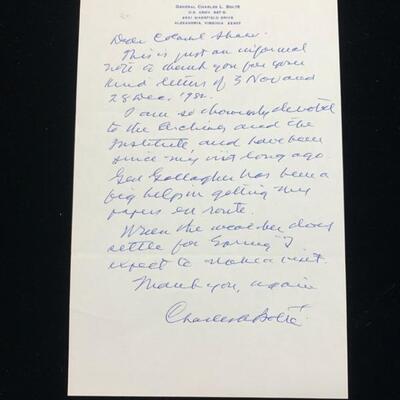 GENERAL CHARLES L. BOLTÉ
U.S. ARMY, RET'D.
ALEXANDRIA, VIRGINIA
Dear Colonel Shaw
This is just an informal
note to thank you for your
kind letters of 3 Nov and
28 Dec. '82.
I am so devoted
to the Archives and the
Institute, and have been
since my visit long ago.
Ged Gallagher has been a
big help in getting my
papers en route.
When the weather does
settle for Spring I
expect to make a visit.
Thank you, again
Charles L Bolté